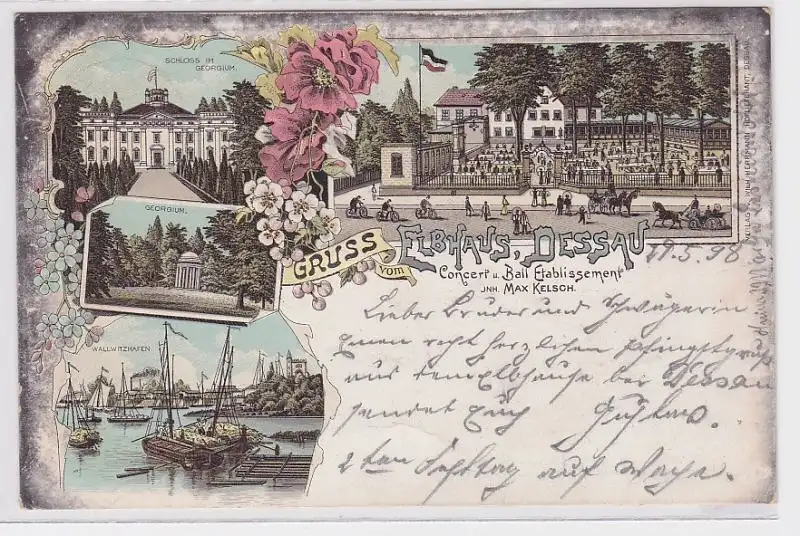 SCHLOSS IM
GEORGIUM.
GEORGIUM.
WALLWITZHAFEN
GRUSS
vom
ELBHAUS, DESSAU
Concert u. Ball Etablissement
JNH. MAX KELSCH.
29.5.98
Lieber Bruder und Schwägerin
Einen recht herzlichen Pfingstgruß
aus dem Elbhause bei Dessau
sendet Euch Gustav.
2ten Festtag auf Wache.